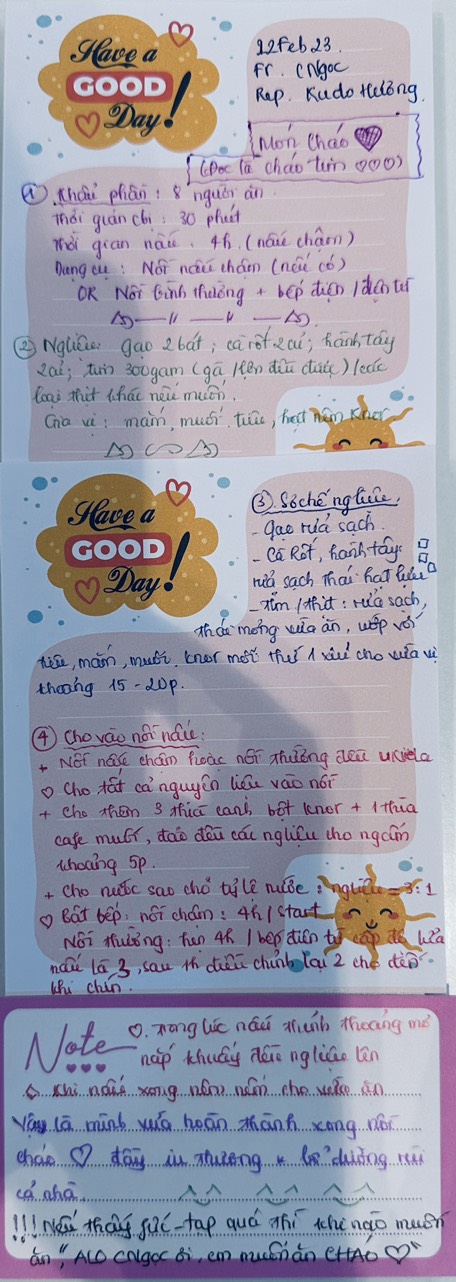 Have a
GOOD
Day!
22Feb23.
Fr. CNgọc
Rep. Kudo Hường.
Món Cháo
(Đọc là cháo tim ♡♡♡)
① Khẩu phần: 8 người ăn
Thời gian chi: 30 phút
Thời gian nấu: 4h. (nấu chậm)
Dụng cụ: Nồi nấu chậm (nếu có)
OR Nồi bình thường + bếp điện / điện từ
② Ngliệu: gạo 2 bát; cà rốt 2 củ; hành tây
2 củ; tim 300gam (gà / lợn đều được) / các
loại thịt khác nếu muốn.
Gia vị: mắm, muối, tiêu, hạt nêm Knor
Have a
GOOD
Day!
③ Sơ chế ngliệu.
- gạo rửa sạch.
- Cà Rốt, hành tây:
rửa sạch thái hạt lựu
- Tim / thịt: rửa sạch,
thái mỏng vừa ăn, ướp với
tiêu, mắm, muối, knor mỗi thứ 1 xíu cho vừa vị
khoảng 15-20p.
④ Cho vào nồi nấu:
+ Nồi nấu chậm hoặc nồi thường đều
♡ Cho tất cả nguyên liệu vào nồi
+ Cho thêm 3 thìa canh bột knor + 1 thìa
cafe muối, đảo đều các ngliệu cho ngấm
khoảng 5p.
+ Cho nước sao cho tỷ lệ nước : ngliệu = 3:1
♡ Bật bếp: nồi chậm: 4h / Start
Nồi thường: hơn 4h / bếp điện từ cấp độ lửa
nấu là 3, sau 1h điều chỉnh lại 2 cho đến
khi chín.
Note
♡. Trong lúc nấu thỉnh thoảng mở
nắp khuấy đều ngliệu lên
♡ Khi nấu xong nêm nếm cho vừa ăn
Vậy là mình vừa hoàn thành xong nồi
cháo ♡ đầy iu thương & bổ dưỡng rùi
cả nhà.
!!! Nếu thấy fức-tạp quá thì khi nào muốn
ăn, "ALO CNgọc ơi, em muốn ăn CHÁO ♡"